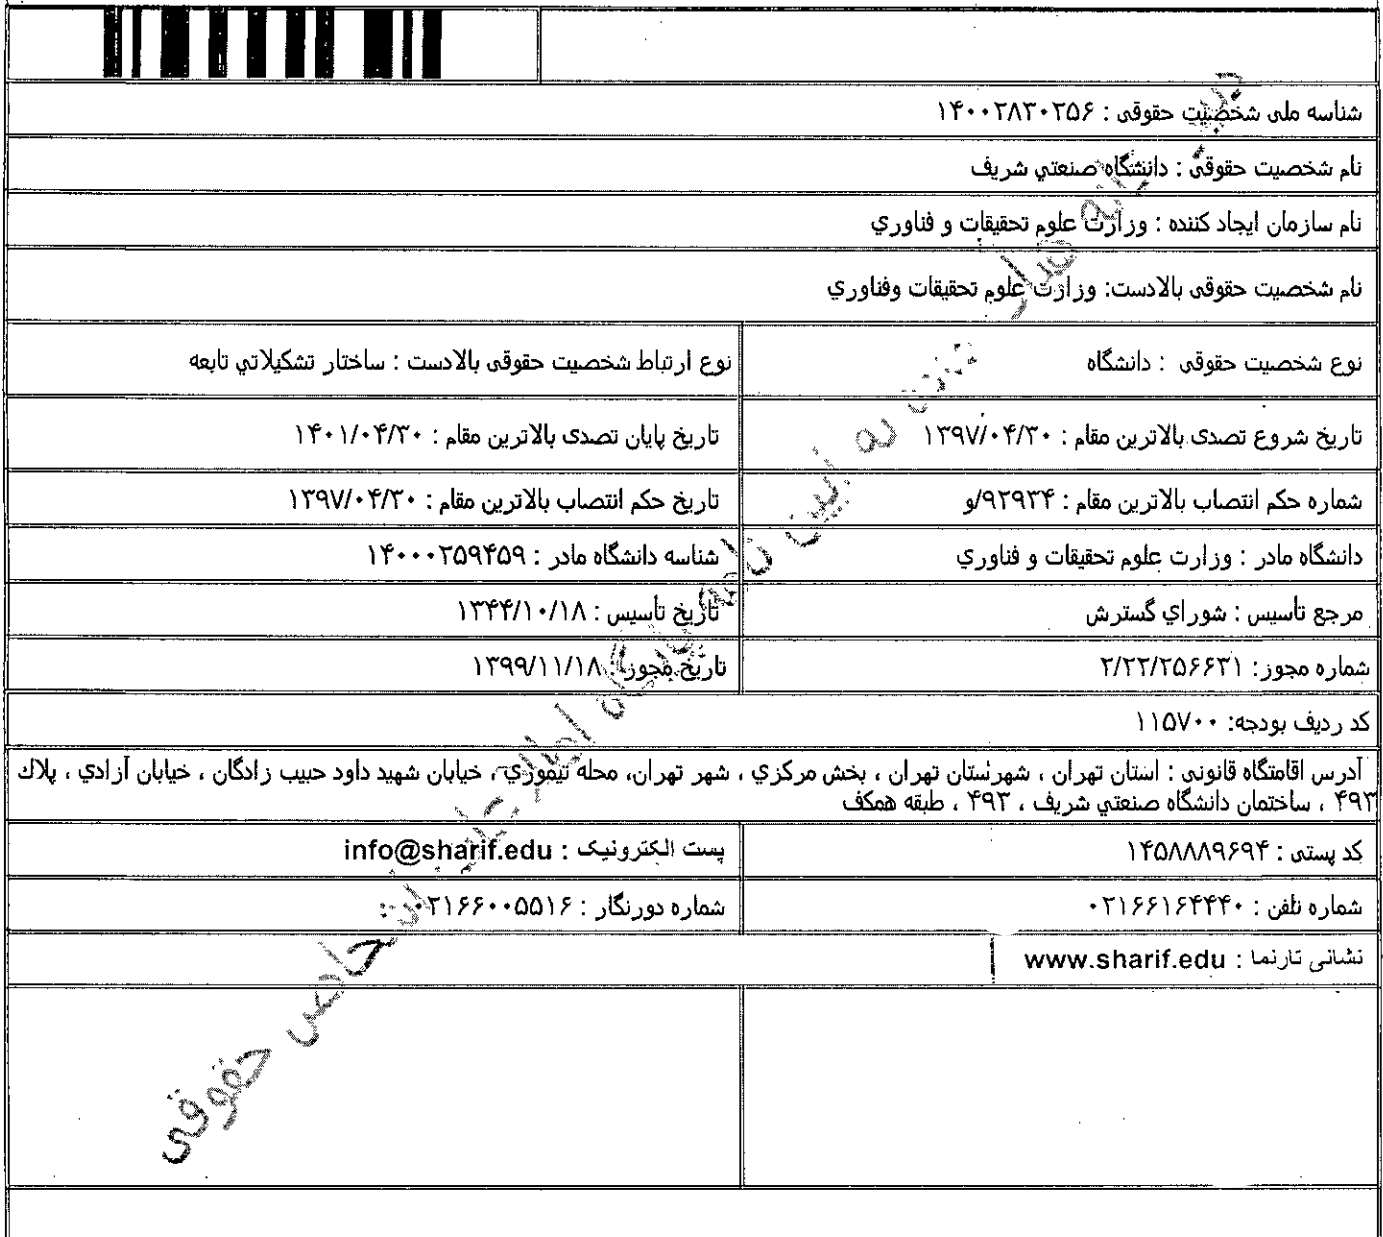 شناسه ملی شخصیت حقوقی : ۱۴۰۰۲۸۳۰۲۵۶
نام شخصیت حقوقی : دانشگاه صنعتي شريف
نام سازمان ایجاد کننده : وزارت علوم تحقيقات و فناوري
نام شخصیت حقوقی بالادست: وزارت علوم تحقيقات وفناوري
نوع شخصیت حقوقی : دانشگاه
نوع ارتباط شخصیت حقوقی بالادست : ساختار تشکيلاتي تابعه
تاریخ شروع تصدی بالاترین مقام : ۱۳۹۷/۰۴/۳۰
تاریخ پایان تصدی بالاترین مقام : ۱۴۰۱/۰۴/۳۰
شماره حکم انتصاب بالاترین مقام : ۹۲۹۳۴/و
تاریخ حکم انتصاب بالاترین مقام : ۱۳۹۷/۰۴/۳۰
دانشگاه مادر : وزارت علوم تحقيقات و فناوري
شناسه دانشگاه مادر : ۱۴۰۰۰۲۵۹۴۵۹
مرجع تأسیس : شوراي گسترش
تاریخ تأسیس : ۱۳۴۴/۱۰/۱۸
شماره مجوز: ۲/۲۲/۲۵۶۶۳۱
تاریخ مجوز: ۱۳۹۹/۱۱/۱۸
کد ردیف بودجه: ۱۱۵۷۰۰
آدرس اقامتگاه قانونی : استان تهران ، شهرستان تهران ، بخش مرکزي ، شهر تهران، محله تيموري ، خيابان شهيد داود حبيب زادگان ، خيابان آزادي ، پلاك
۴۹۳ ، ساختمان دانشگاه صنعتي شريف ، ۴۹۳ ، طبقه همکف
کد پستی : ۱۴۵۸۸۸۹۶۹۴
پست الکترونیک : info@sharif.edu
شماره تلفن : ۰۲۱۶۶۱۶۴۴۴۰
شماره دورنگار : ۰۲۱۶۶۰۰۵۵۱۶
نشانی تارنما : www.sharif.edu